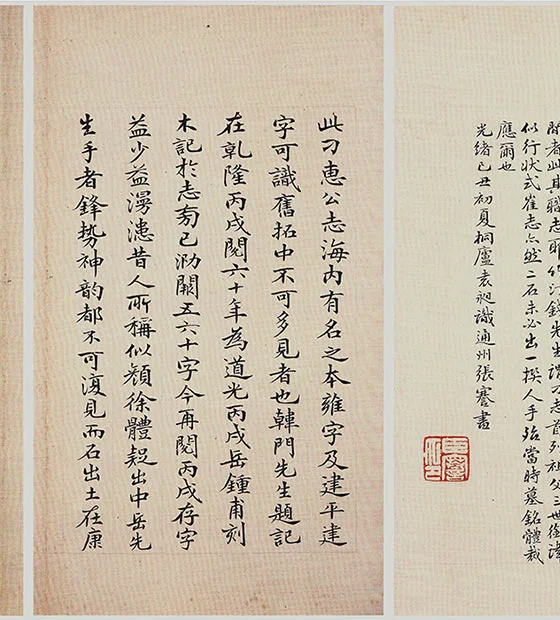 者此其職志耶竹汀錢先生謂志首列祖父三世銜諱
似行狀式崔志亦然二石未必出一撰人手殆當時墓銘體裁
應爾也
光緒己丑初夏桐廬袁昶識通州張謇書
此刁惠公志海內有名之本雍字及建平建
字可識舊拓中不可多見者也韓門先生題記
在乾隆丙戌閱六十年為道光丙戌岳鍾甫刻
木記於志匋已泐闕五六十字今再閱丙戌存字
益少益漫漶昔人所稱似顏徐體疑出中岳先
生手者鋒勢神韵都不可復見而石出土在康